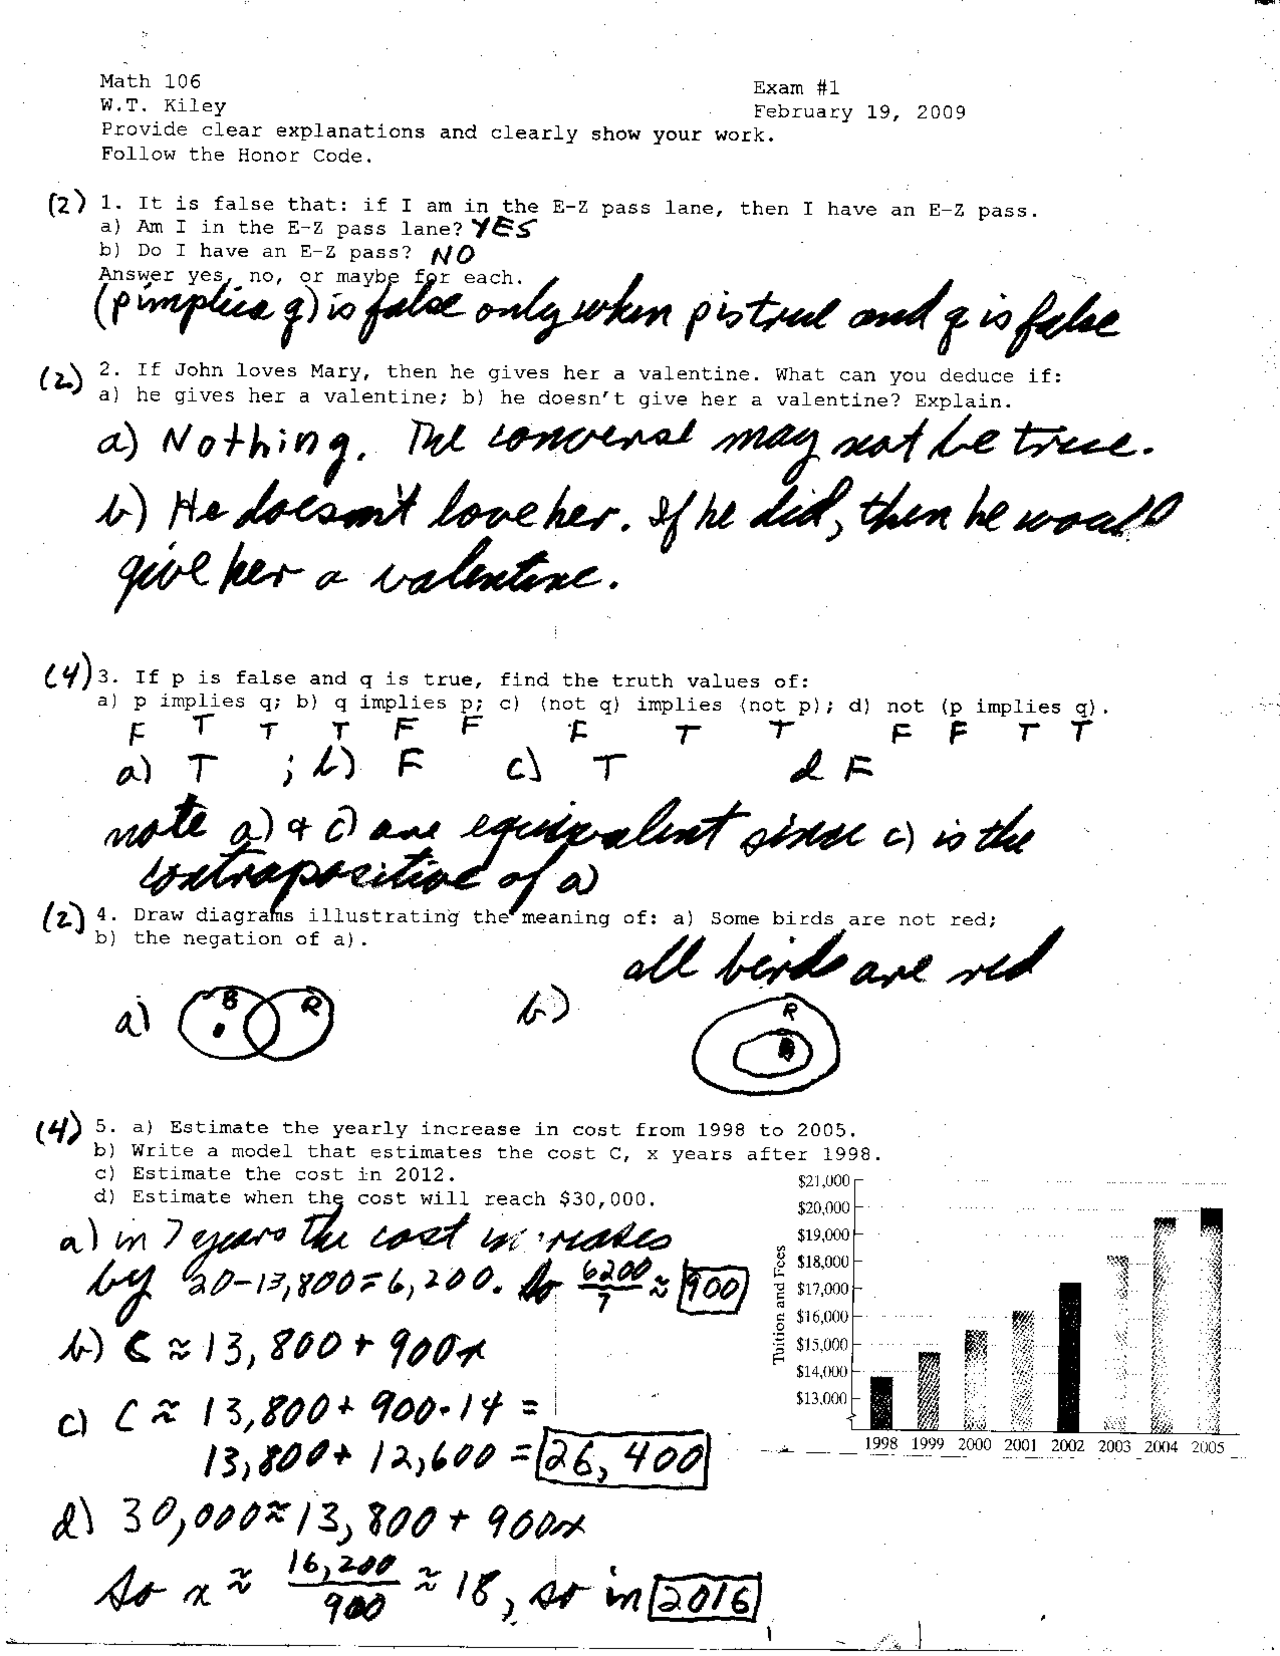 Math 106
Exam #1
W.T. Kiley
February 19, 2009
Provide clear explanations and clearly show your work.
Follow the Honor Code.
(2) 1. It is false that: if I am in the E-Z pass lane, then I have an E-Z pass.
a) Am I in the E-Z pass lane? YES
b) Do I have an E-Z pass? NO
Answer yes, no, or maybe for each.
(p implies q) is false only when p is true and q is false
(2) 2. If John loves Mary, then he gives her a valentine. What can you deduce if:
a) he gives her a valentine; b) he doesn't give her a valentine? Explain.
a) Nothing. The converse may not be true.
b) He doesn't love her. If he did, then he would
give her a valentine.
(4) 3. If p is false and q is true, find the truth values of:
a) p implies q; b) q implies p; c) (not q) implies (not p); d) not (p implies q).
F T T T F F F T T F F T T
a) T ; b) F c) T d F
note a) & c) are equivalent since c) is the
contrapositive of a)
(2) 4. Draw diagrams illustrating the meaning of: a) Some birds are not red;
b) the negation of a).
all birds are red
a) B R b) R B
(4) 5. a) Estimate the yearly increase in cost from 1998 to 2005.
b) Write a model that estimates the cost C, x years after 1998.
c) Estimate the cost in 2012.
d) Estimate when the cost will reach $30,000.
a) in 7 years the cost increases
by 20-13,800=6,200. So 6200/7 ≈ 900
b) C ≈ 13,800 + 900x
c) C ≈ 13,800 + 900·14 =
13,800 + 12,600 = 26,400
d) 30,000 ≈ 13,800 + 900x
So x ≈ 16,200/900 ≈ 18, so in 2016
Tuition and Fees
$21,000
$20,000
$19,000
$18,000
$17,000
$16,000
$15,000
$14,000
$13,000
1998 1999 2000 2001 2002 2003 2004 2005